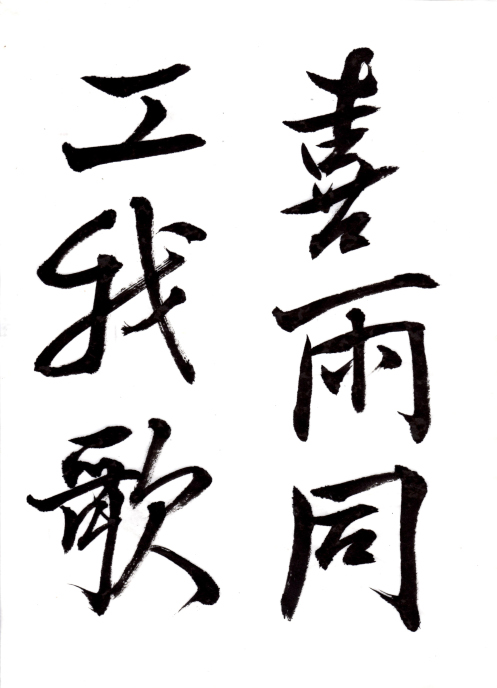 喜雨同
工我歌